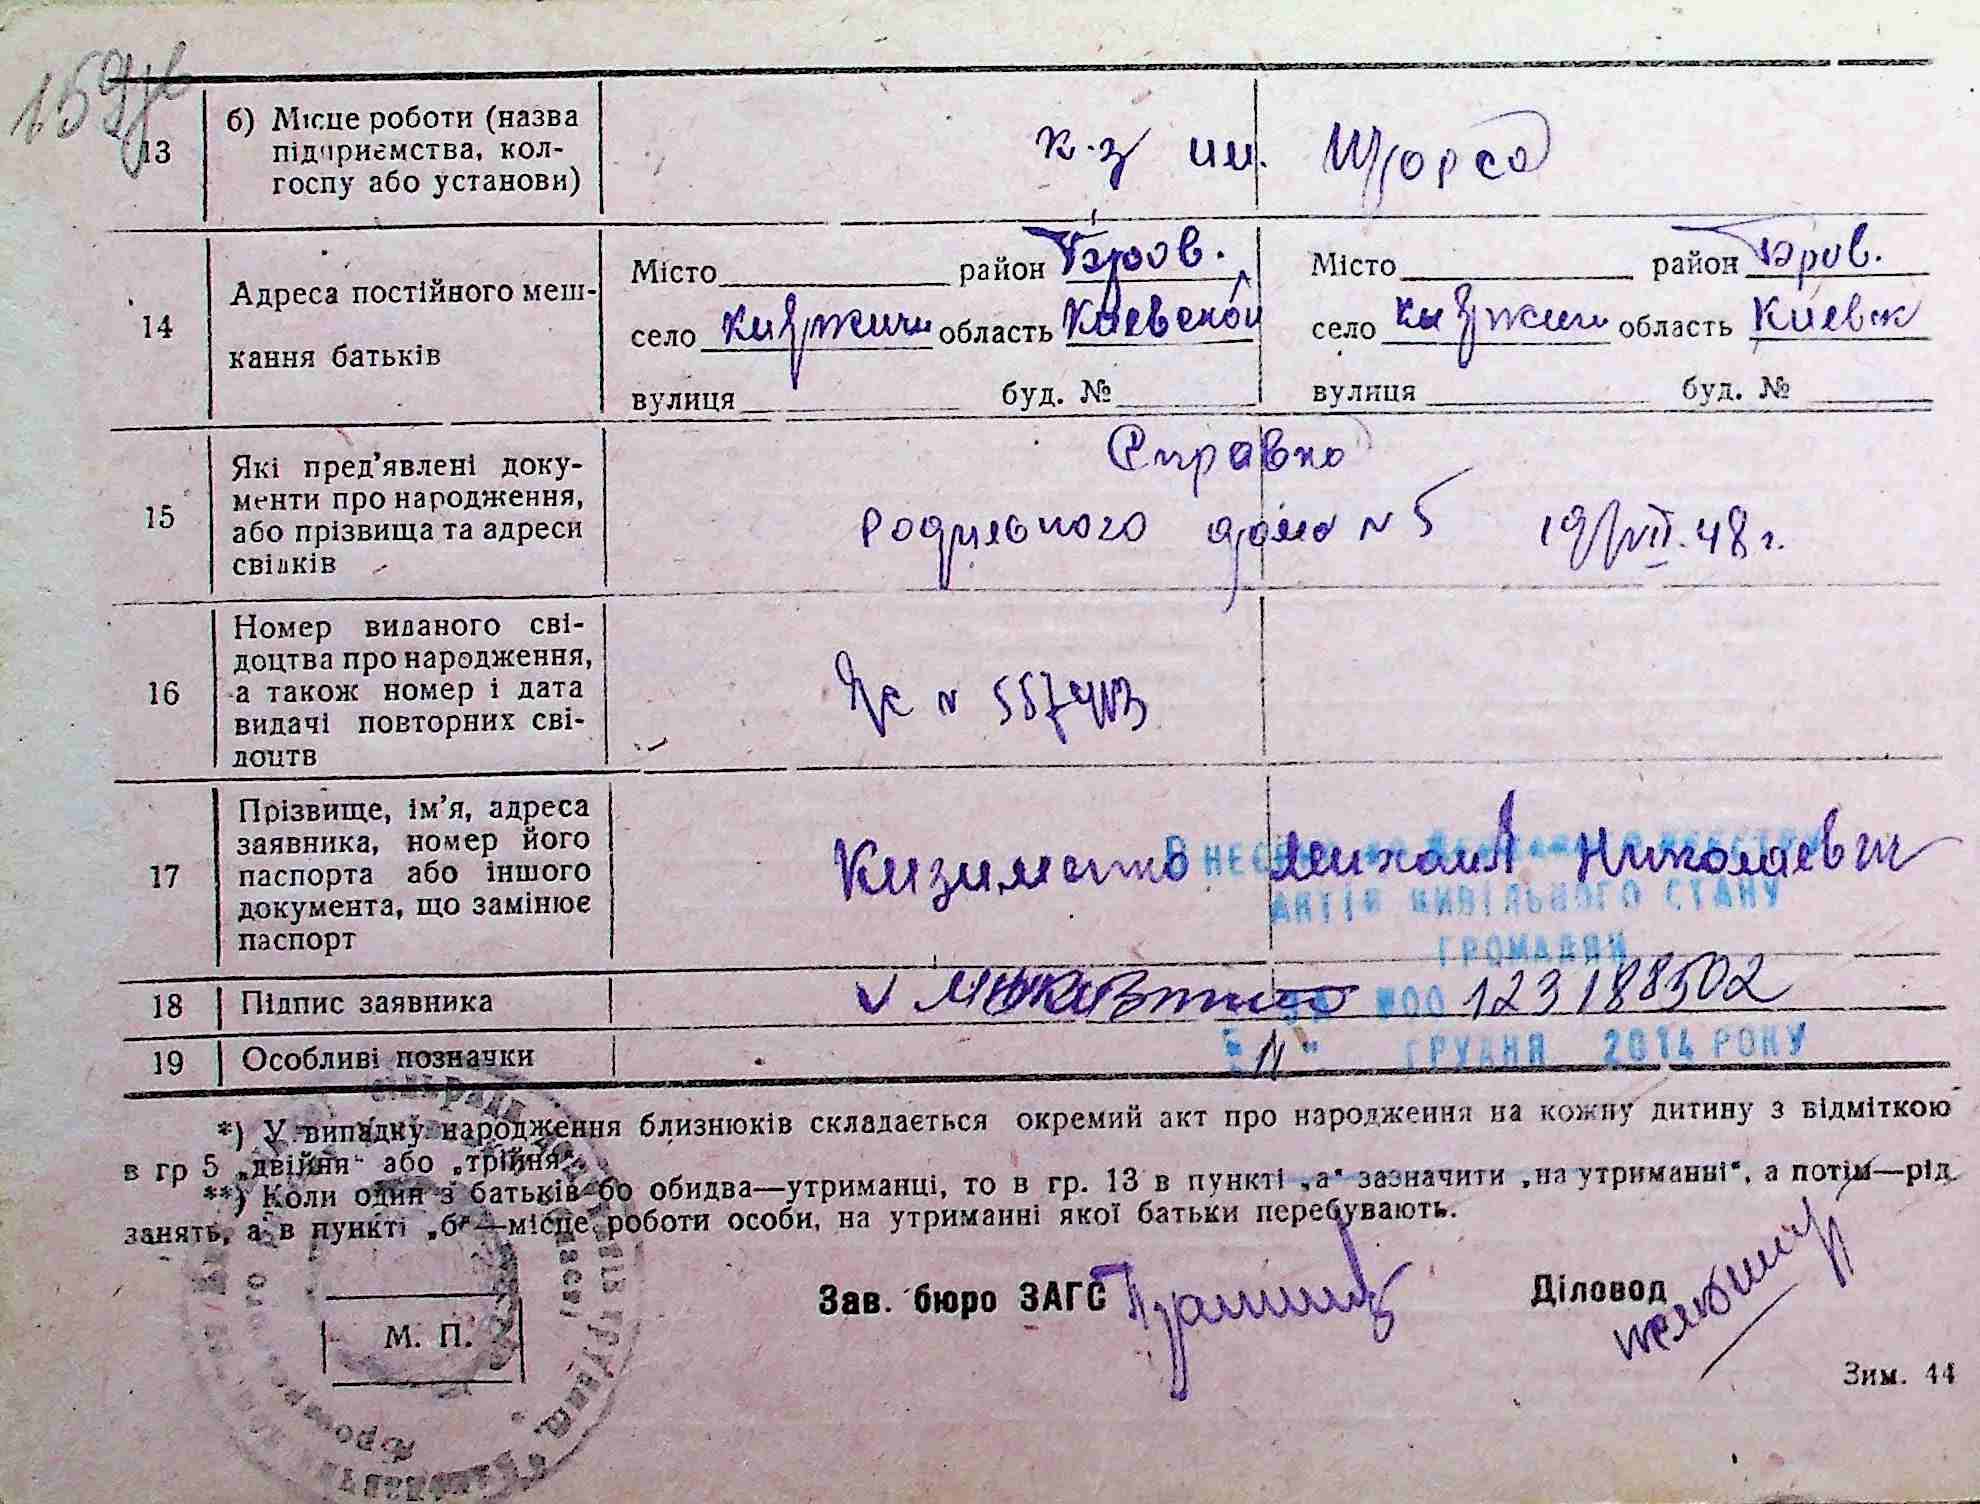 159
13
б) Місце роботи (назва
підприємства, кол-
госпу або установи)
к-з им. Щорса
14
Адреса постійного меш-
кання батьків
Місто район Бров.
село Княжичи область Киевской
вулиця буд. №
Місто район Бров.
село Княжичи область Киевск
вулиця буд. №
15
Які пред'явлені доку-
менти про народження,
або прізвища та адреси
свідків
Справка
Родильного дома № 5 19/VII.48 г.
16
Номер виданого сві-
доцтва про народження,
а також номер і дата
видачі повторних сві-
доцтв
№
17
Прізвище, ім'я, адреса
заявника, номер його
паспорта або іншого
документа, що замінює
паспорт
Михаил Николаевич
АКТІВ ЦИВІЛЬНОГО СТАНУ
ГРОМАДЯН
18
Підпис заявника
ЗА №00 123188502
19
Особливі позначки
"11" ГРУДНЯ 2014 РОКУ
*) У випадку народження близнюків складається окремий акт про народження на кожну дитину з відміткою
в гр 5 „двійня“ або „трійня“.
**) Коли один з батьків бо обидва—утриманці, то в гр. 13 в пункті „а“ зазначити „на утриманні“, а потім—рід
занять, а в пункті „б“—місце роботи особи, на утриманні якої батьки перебувають.
Зав. бюро ЗАГС
Діловод
М. П.
Зим. 44